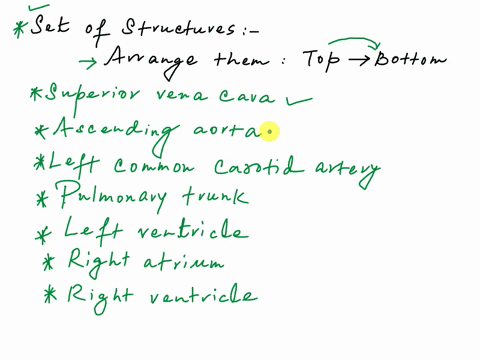 * Set of Structures:-
→ Arrange them: Top → Bottom
* Superior vena cava ✓
* Ascending aorta
* Left common carotid artery
* Pulmonary trunk
* Left ventricle
* Right atrium
* Right ventricle